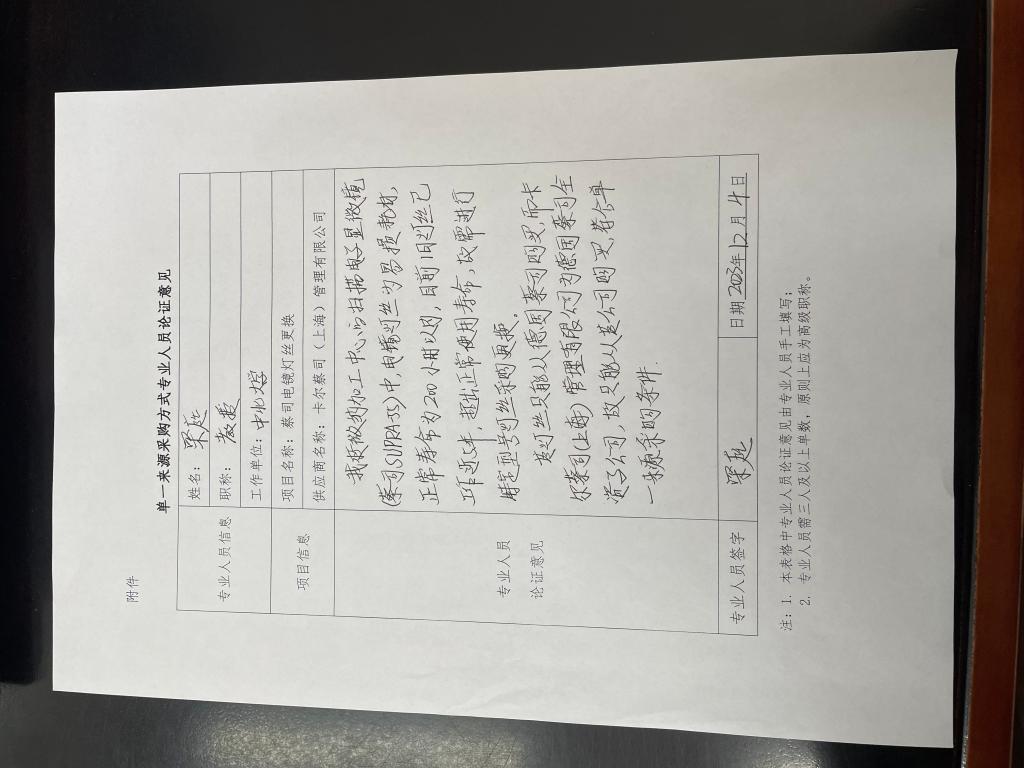 附件
单一来源采购方式专业人员论证意见
专业人员信息
姓名：梁庭
职称：教授
工作单位：中北大学
项目信息
项目名称：蔡司电镜灯丝更换
供应商名称：卡尔蔡司（上海）管理有限公司
专业人员
论证意见
我校微纳加工中心的扫描电子显微镜
(蔡司SUPRA55)中,电镜灯丝为易损耗材,
正常寿命为 200 小时以内,目前旧灯丝已
工作近 年,超出正常使用寿命,故需进行
特定型号灯丝采购更换。
该灯丝只能从德国蔡司购买,而卡
尔蔡司(上海)管理有限公司为德国蔡司全
资子公司,故只能从该公司购买,符合单
一来源采购条件.
专业人员签字
梁庭
日期 2023年12月4日
注：1. 本表格中专业人员论证意见由专业人员手工填写；
2. 专业人员需三人及以上单数，原则上应为高级职称。